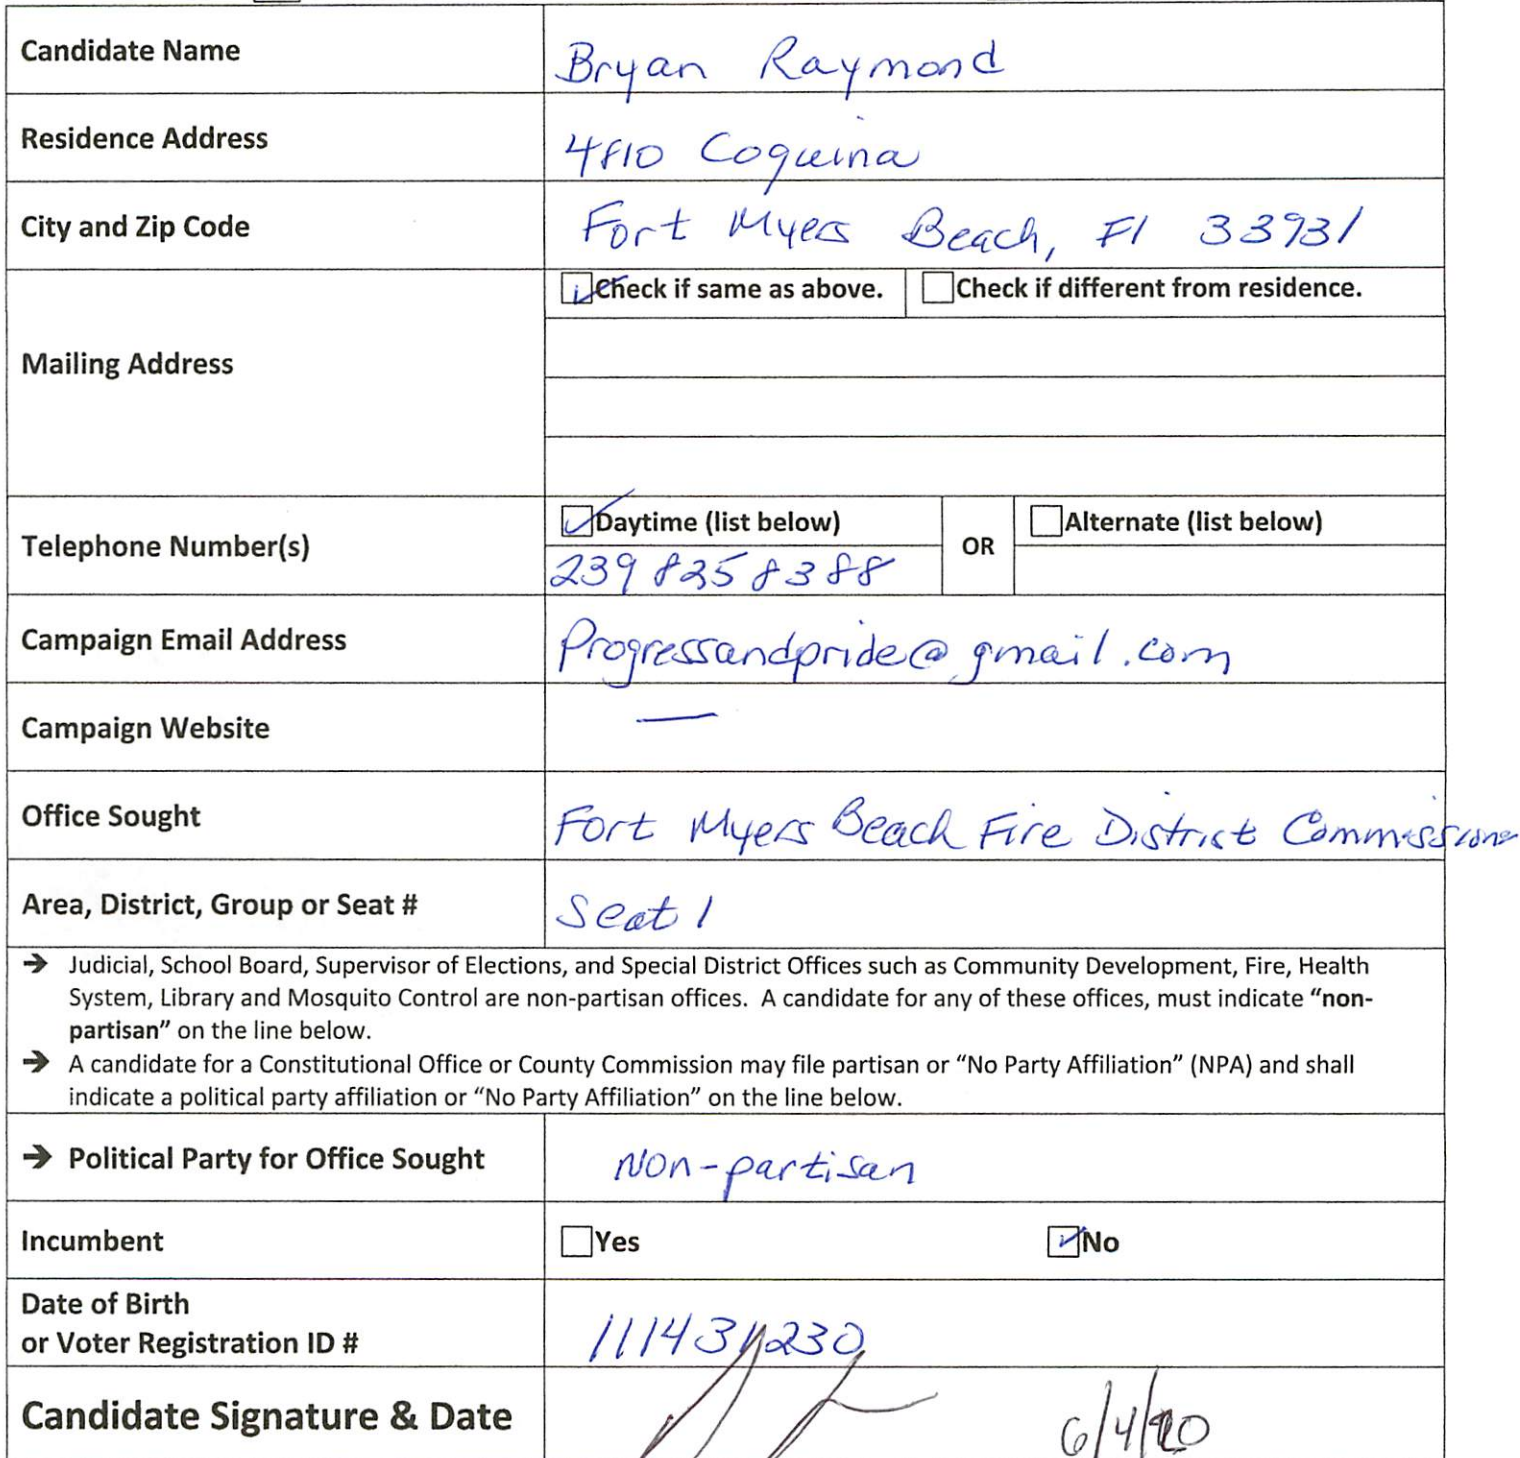 Candidate Name Bryan Raymond
Residence Address 4810 Coquina
City and Zip Code Fort Myers Beach, Fl 33931
Check if same as above. Check if different from residence.
Mailing Address
Daytime (list below) OR Alternate (list below)
Telephone Number(s) 239 825 8388
Campaign Email Address Progressandpride@gmail.com
Campaign Website —
Office Sought Fort Myers Beach Fire District Commissioner
Area, District, Group or Seat # Seat 1
➔ Judicial, School Board, Supervisor of Elections, and Special District Offices such as Community Development, Fire, Health
System, Library and Mosquito Control are non-partisan offices. A candidate for any of these offices, must indicate “non-
partisan” on the line below.
➔ A candidate for a Constitutional Office or County Commission may file partisan or “No Party Affiliation” (NPA) and shall
indicate a political party affiliation or “No Party Affiliation” on the line below.
➔ Political Party for Office Sought Non-partisan
Incumbent Yes No
Date of Birth
or Voter Registration ID # 111431230
Candidate Signature & Date 6/4/20